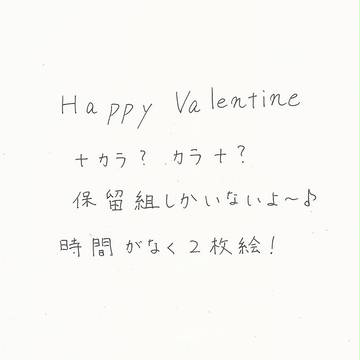 Happy Valentine
十カラ？ カラ十？
保留組しかいないよ〜♪
時間がなく２枚絵！